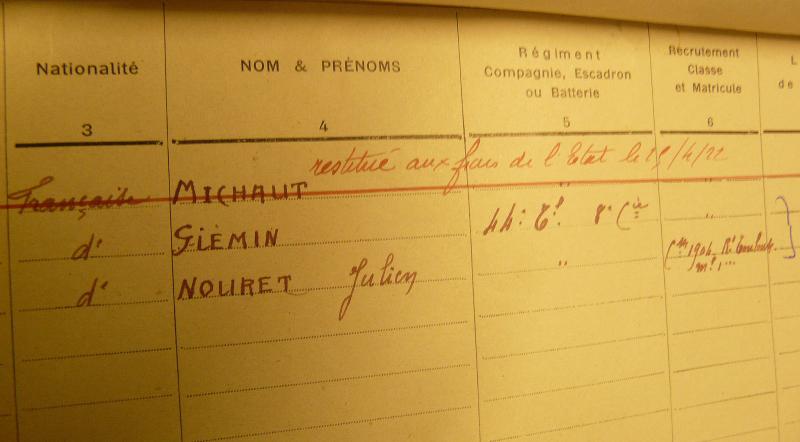 Nationalité NOM & PRÉNOMS Régiment Compagnie, Escadron ou Batterie Recrutement Classe et Matricule L de
3 4 5 6
restitué aux frais de l'Etat le 25/4/22
Française MICHAUT "
d° GIÉMIN 44e 8e Cie "
d° NOURET Julien " 1904